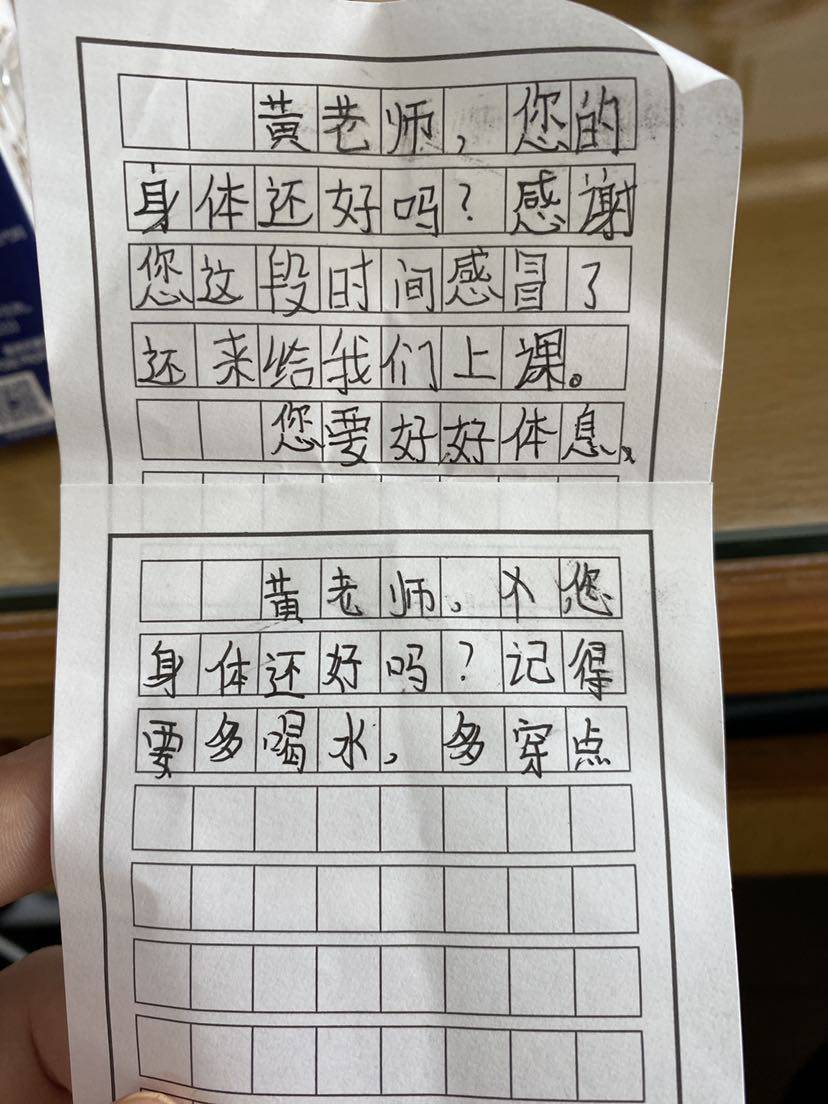 黄老师，您的
身体还好吗？感谢
您这段时间感冒了
还来给我们上课。
您要好好体息、
黄老师。您
身体还好吗？记得
要多喝水，多穿点